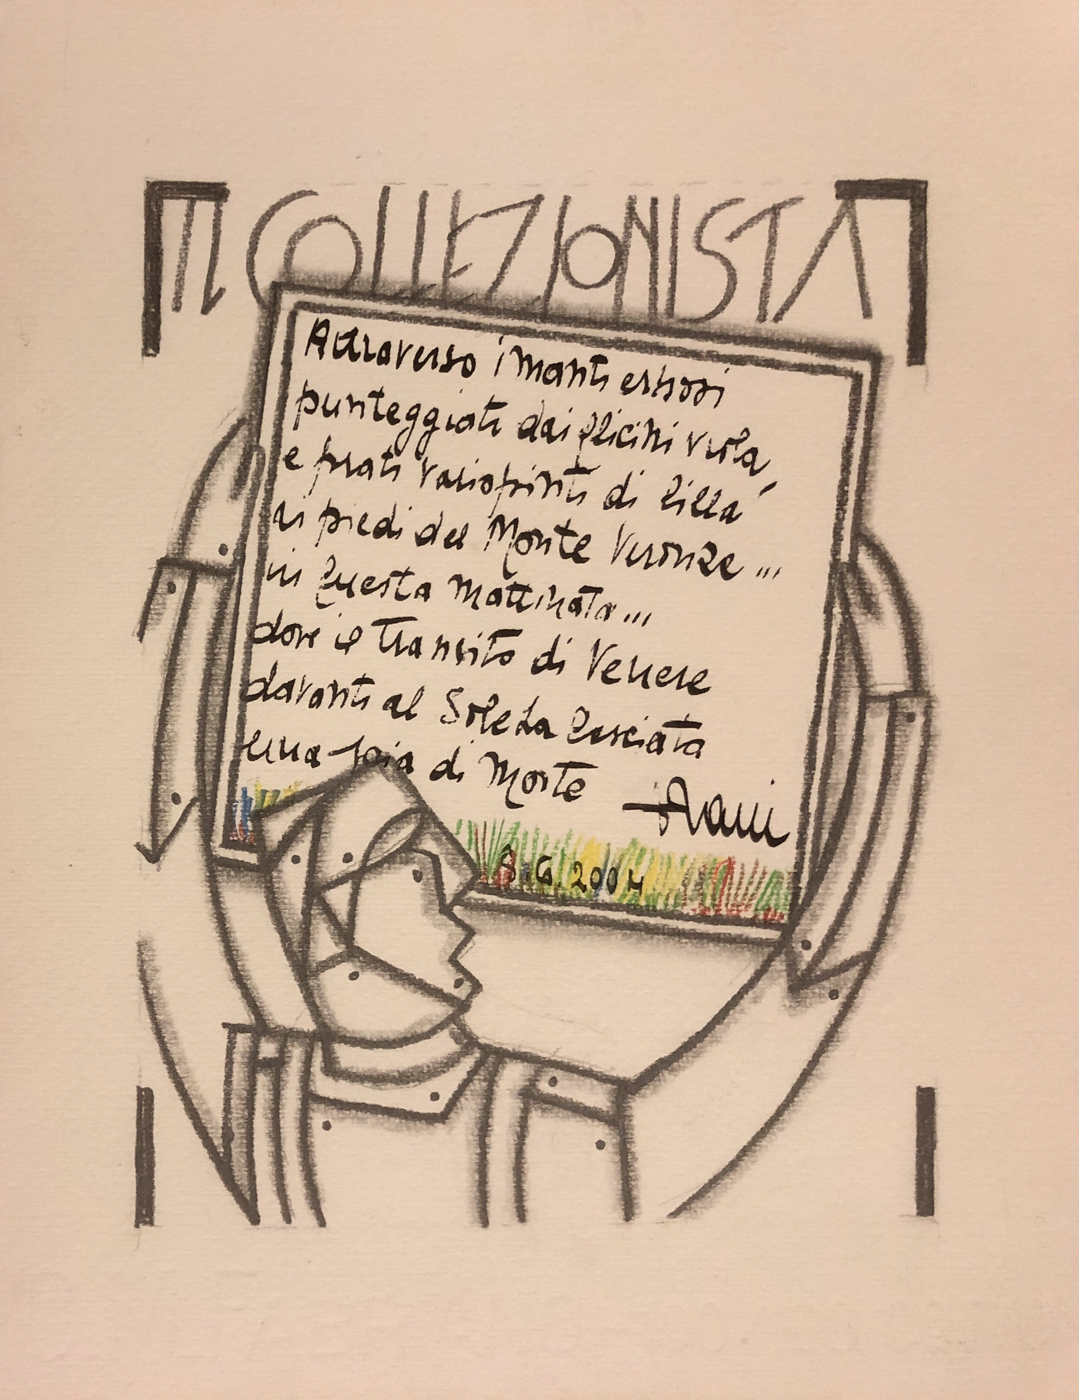 IL COLLEZIONISTA
Attraverso i manti erbosi
punteggiati dai glicini viola,
e prati variopinti di lillà
ai piedi del Monte Veronze...
in questa mattinata...
dove il transito di Venere
davanti al Sole da lasciata
una scia di Morte
8.6.2004